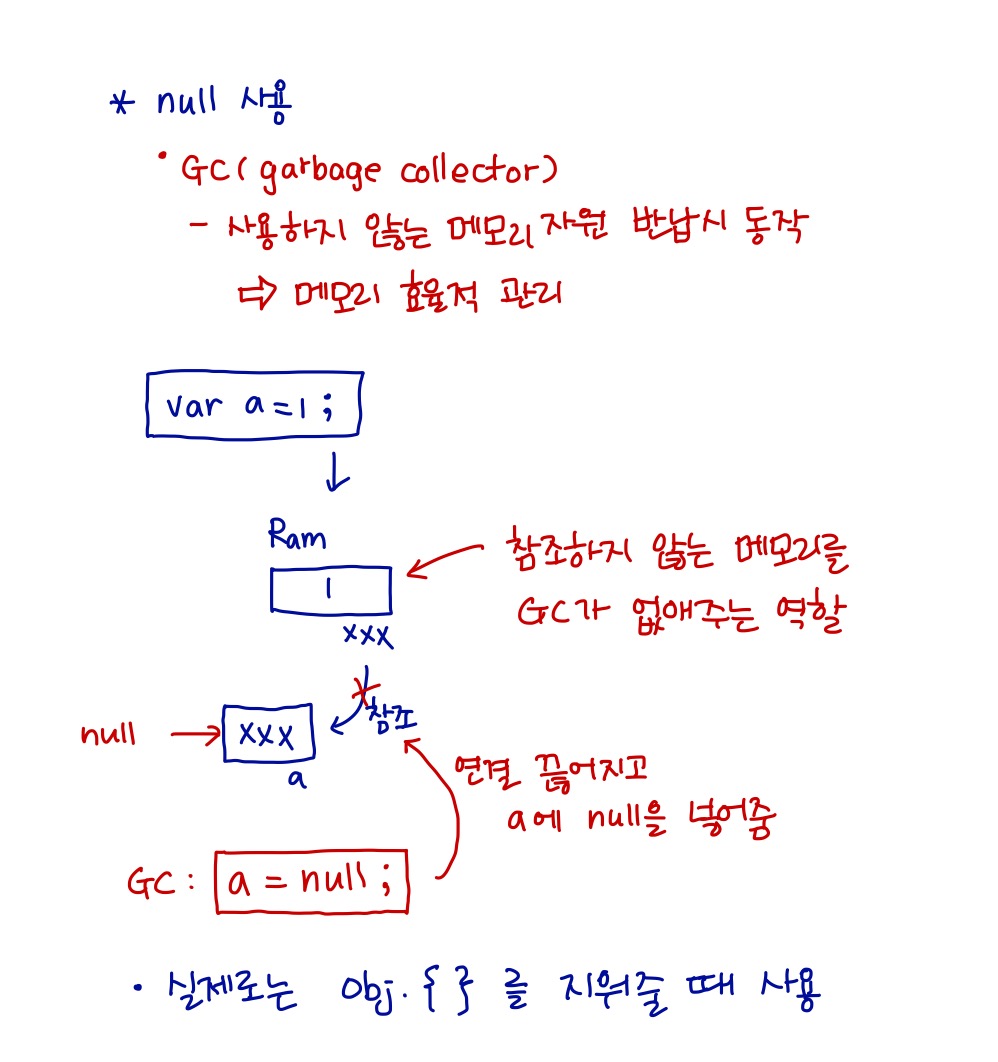 * null 사용
• GC( garbage collector)
- 사용하지 않는 메모리 자원 반납시 동작
⇨ 메모리 효율적 관리
var a=1;
↓
Ram
1
xxx
참조하지 않는 메모리를
GC가 없애주는 역할
참조
null → xxx
a
연결 끊어지고
a에 null을 넣어줌
GC: a = null;
• 실제로는 obj. { } 를 지워줄 때 사용